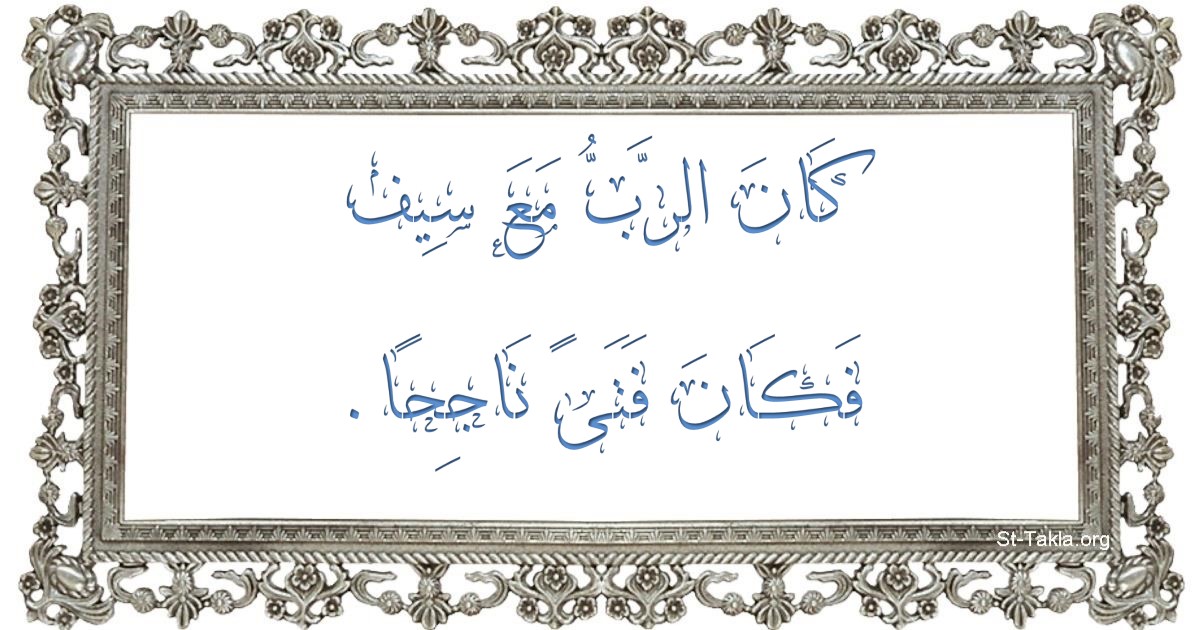 كَانَ الرَّبُّ مَعَ سِيفْ
فَكَانَ فَتَىً نَاجِحًا.
St-Takla.org